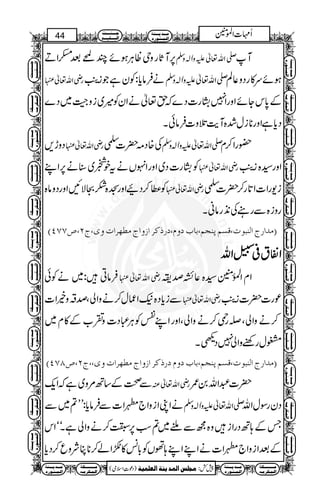 44
اُمہاتُ المؤمنین
آپ صلی اللہ تعالیٰ علیہ واٰلہ وسلم پر آثار وحی ظاہر ہوئے چند لمحے بعد مسکراتے
ہوئے سرکار دو عالم صلی اللہ تعالیٰ علیہ واٰلہ وسلم نے فرمایا: کون ہے جو زینب رضی اللہ تعالیٰ عنہا
کے پاس جائے اور انہیں بشارت دے کہ حق تعالیٰ نے ان کو میری زوجیت میں دے
دیا ہے اور نازل شدہ آیت تلاوت فرمائی۔
حضور اکرم صلی اللہ تعالیٰ علیہ واٰلہ وسلم کی خادمہ حضرت سلمی رضی اللہ تعالیٰ عنہا دوڑیں
اور سیدہ زینب رضی اللہ تعالیٰ عنہا کو بشارت دی اور انہوں نے یہ خوشخبری سنانے پر اپنے
زیورات اتار کر حضرت سلمی رضی اللہ تعالیٰ عنہا کو عطا کر دیئے اور سجدہ شکر بجا لائیں اور دو ماہ
روزہ سے رہنے کی نذر مانی۔
(مدارج النبوت،قسم پنجم،باب دوم،درذکر ازواج مطہرات وی،ج۲،ص۴۷۷)
انفاق فی سبیل اللہ
ام المؤمنین سیدہ عائشہ صدیقہ رضی اللہ تعالیٰ عنہا فرماتی ہیں: میں نے کوئی
عورت حضرت زینب رضی اللہ تعالیٰ عنہا سے زیادہ نیک اعمال کرنے والی، صدقہ و خیرات
کرنے والی، صلہ رحمی کرنے والی اور اپنے نفس کو ہر عبادت و تقرب کے کام میں
مشغول رکھنے والی نہیں دیکھی۔
(مدارج النبوت،قسم پنجم،باب دوم درذکر ازواج مطہرات وی،ج۲،ص۴۷۸)
حضرت عبداللہ بن عمر رضی اللہ تعالیٰ عنہ سے صحت کے ساتھ مروی ہے کہ ایک
دن رسول اللہ صلی اللہ تعالیٰ علیہ واٰلہ وسلم نے اپنی ازواج مطہرات سے فرمایا: ’’تم میں سے
جس کے ہاتھ دراز ہیں وہ مجھ سے ملنے میں تم سب پر سبقت کرنے والی ہے۔‘‘ اس
کے بعد ازواج مطہرات نے اپنے اپنے ہاتھوں کو بانس کا ٹکڑا لے کر ناپنا شروع کر دیا
پیش کش: مجلس المدینۃ العلمیۃ (دعوتِ اسلامی)